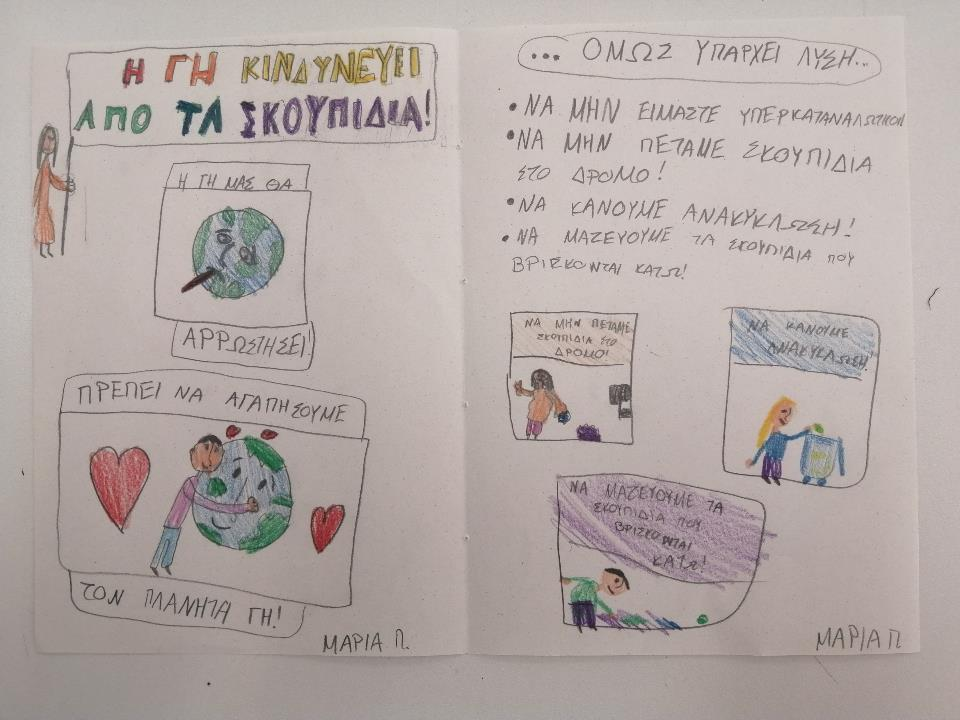 Η ΓΗ ΚΙΝΔΥΝΕΥΕΙ
ΑΠΟ ΤΑ ΣΚΟΥΠΙΔΙΑ!
Η ΓΗ ΜΑΣ ΘΑ
ΑΡΡΩΣΤΗΣΕΙ!
ΠΡΕΠΕΙ ΝΑ ΑΓΑΠΗΣΟΥΜΕ
ΤΟΝ ΠΛΑΝΗΤΑ ΓΗ!
ΜΑΡΙΑ Π.
... ΟΜΩΣ ΥΠΑΡΧΕΙ ΛΥΣΗ...
• ΝΑ ΜΗΝ ΕΙΜΑΣΤΕ ΥΠΕΡΚΑΤΑΝΑΛΩΤΙΚΟΙ
• ΝΑ ΜΗΝ ΠΕΤΑΜΕ ΣΚΟΥΠΙΔΙΑ
ΣΤΟ ΔΡΟΜΟ!
• ΝΑ ΚΑΝΟΥΜΕ ΑΝΑΚΥΚΛΩΣΗ!
• ΝΑ ΜΑΖΕΥΟΥΜΕ ΤΑ ΣΚΟΥΠΙΔΙΑ ΠΟΥ
ΒΡΙΣΚΟΝΤΑΙ ΚΑΤΩ!
ΝΑ ΜΗΝ ΠΕΤΑΜΕ
ΣΚΟΥΠΙΔΙΑ ΣΤΟ
ΔΡΟΜΟ!
ΝΑ ΚΑΝΟΥΜΕ
ΑΝΑΚΥΚΛΩΣΗ!
ΝΑ ΜΑΖΕΥΟΥΜΕ ΤΑ
ΣΚΟΥΠΙΔΙΑ ΠΟΥ
ΒΡΙΣΚΟΝΤΑΙ
ΚΑΤΩ!
ΜΑΡΙΑ Π.